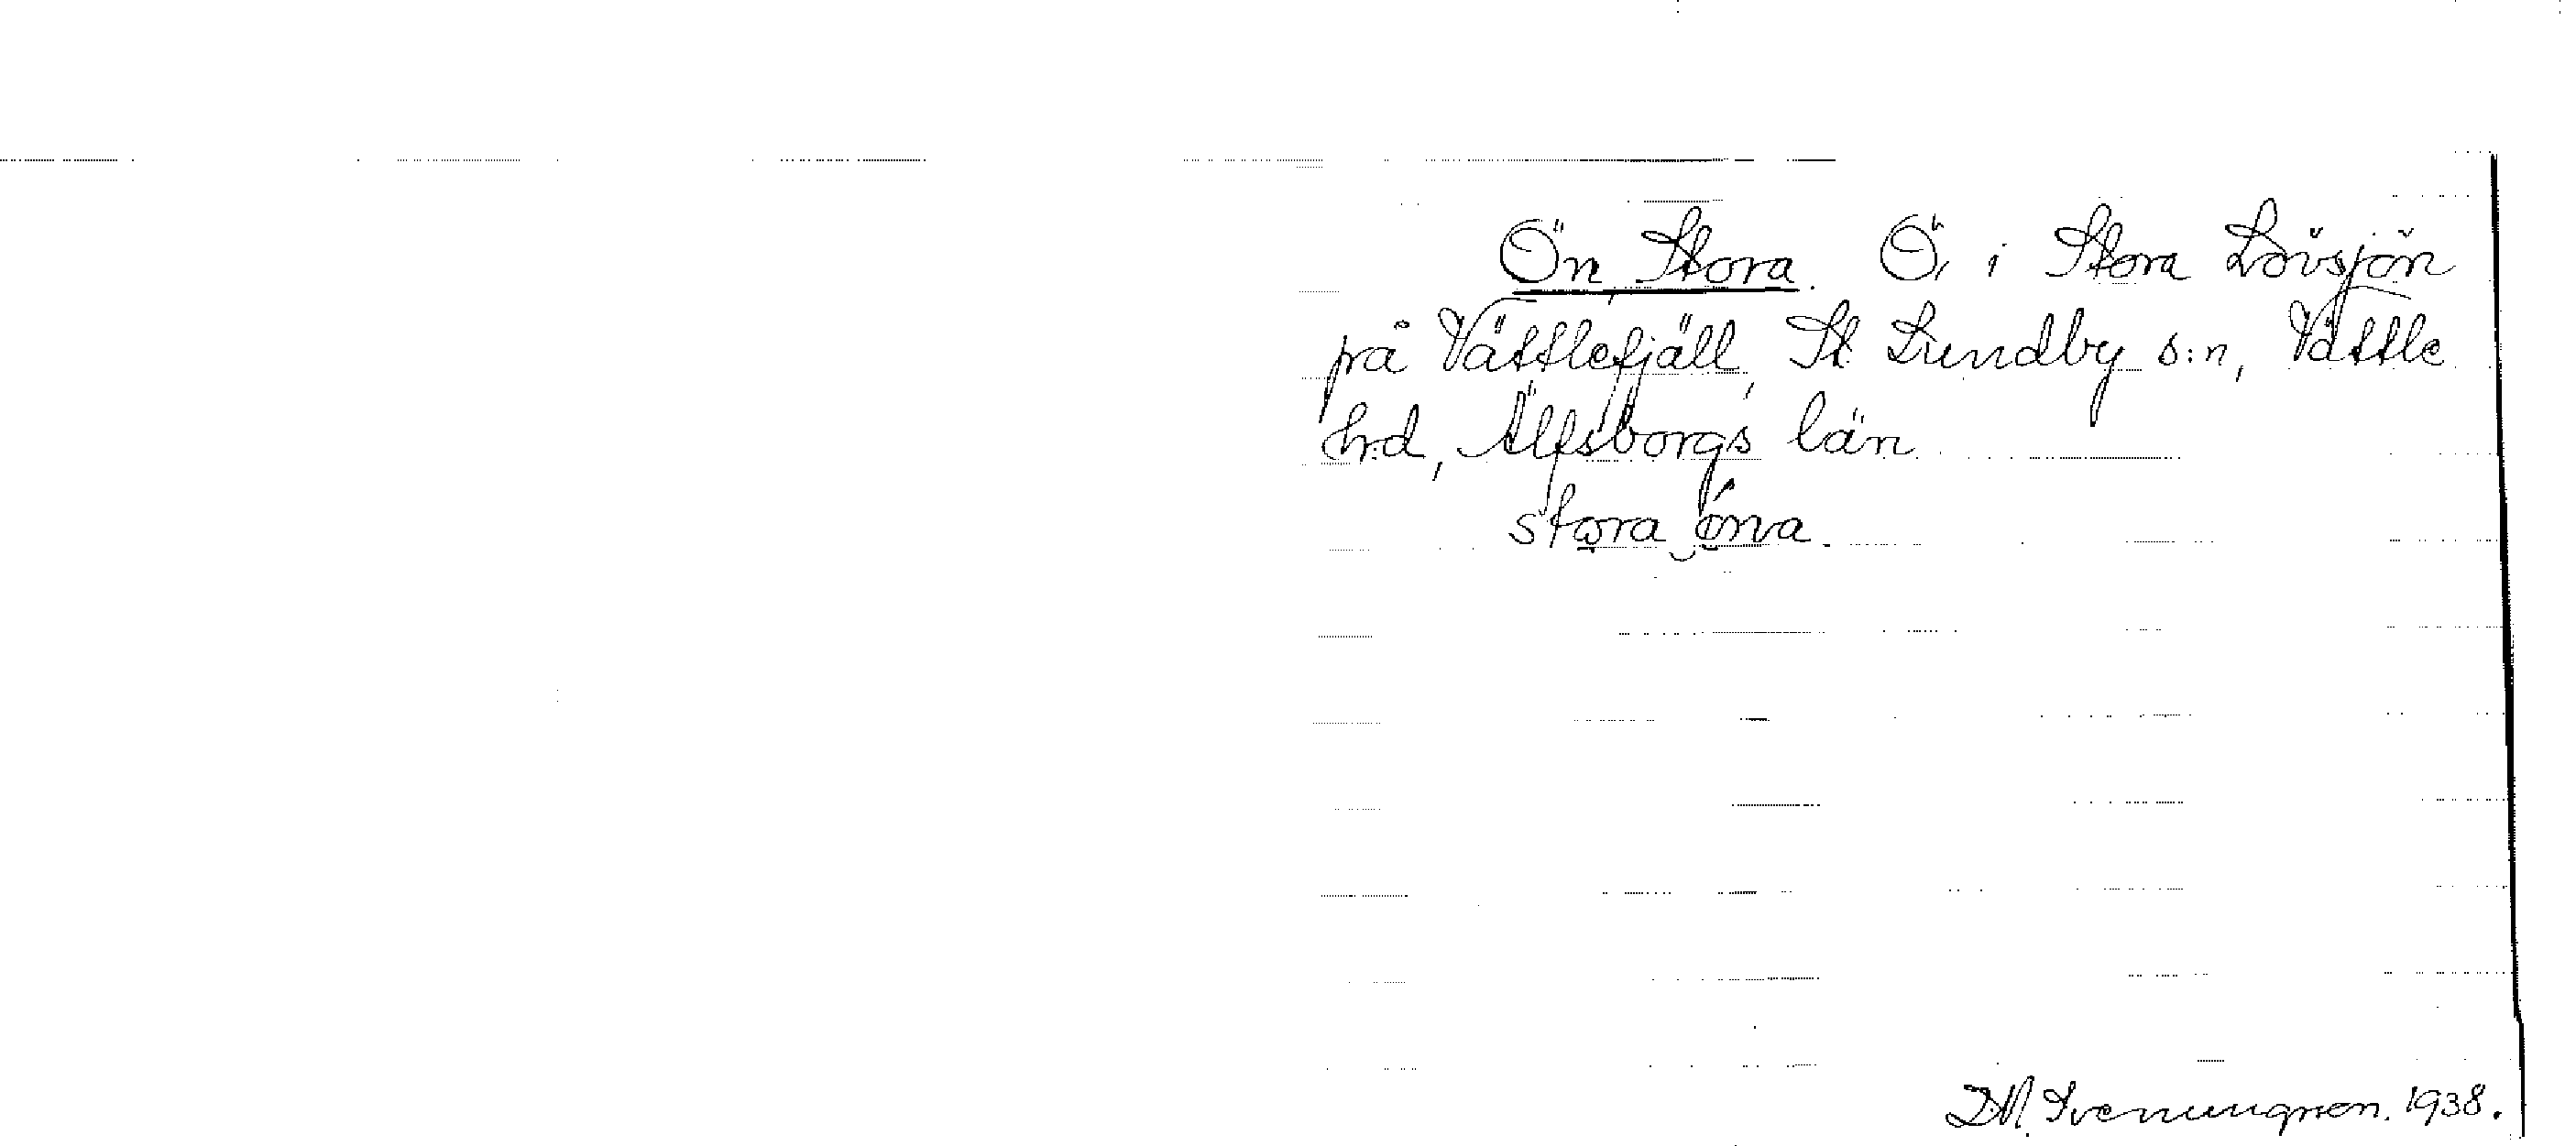 Ön, Stora. Ö, i Stora Lövsjön
på Vättlefjäll, St. Lundby s:n, Vättle
hrd, Älfsborgs län
stora öna.
I.M. Svenungsson. 1938.